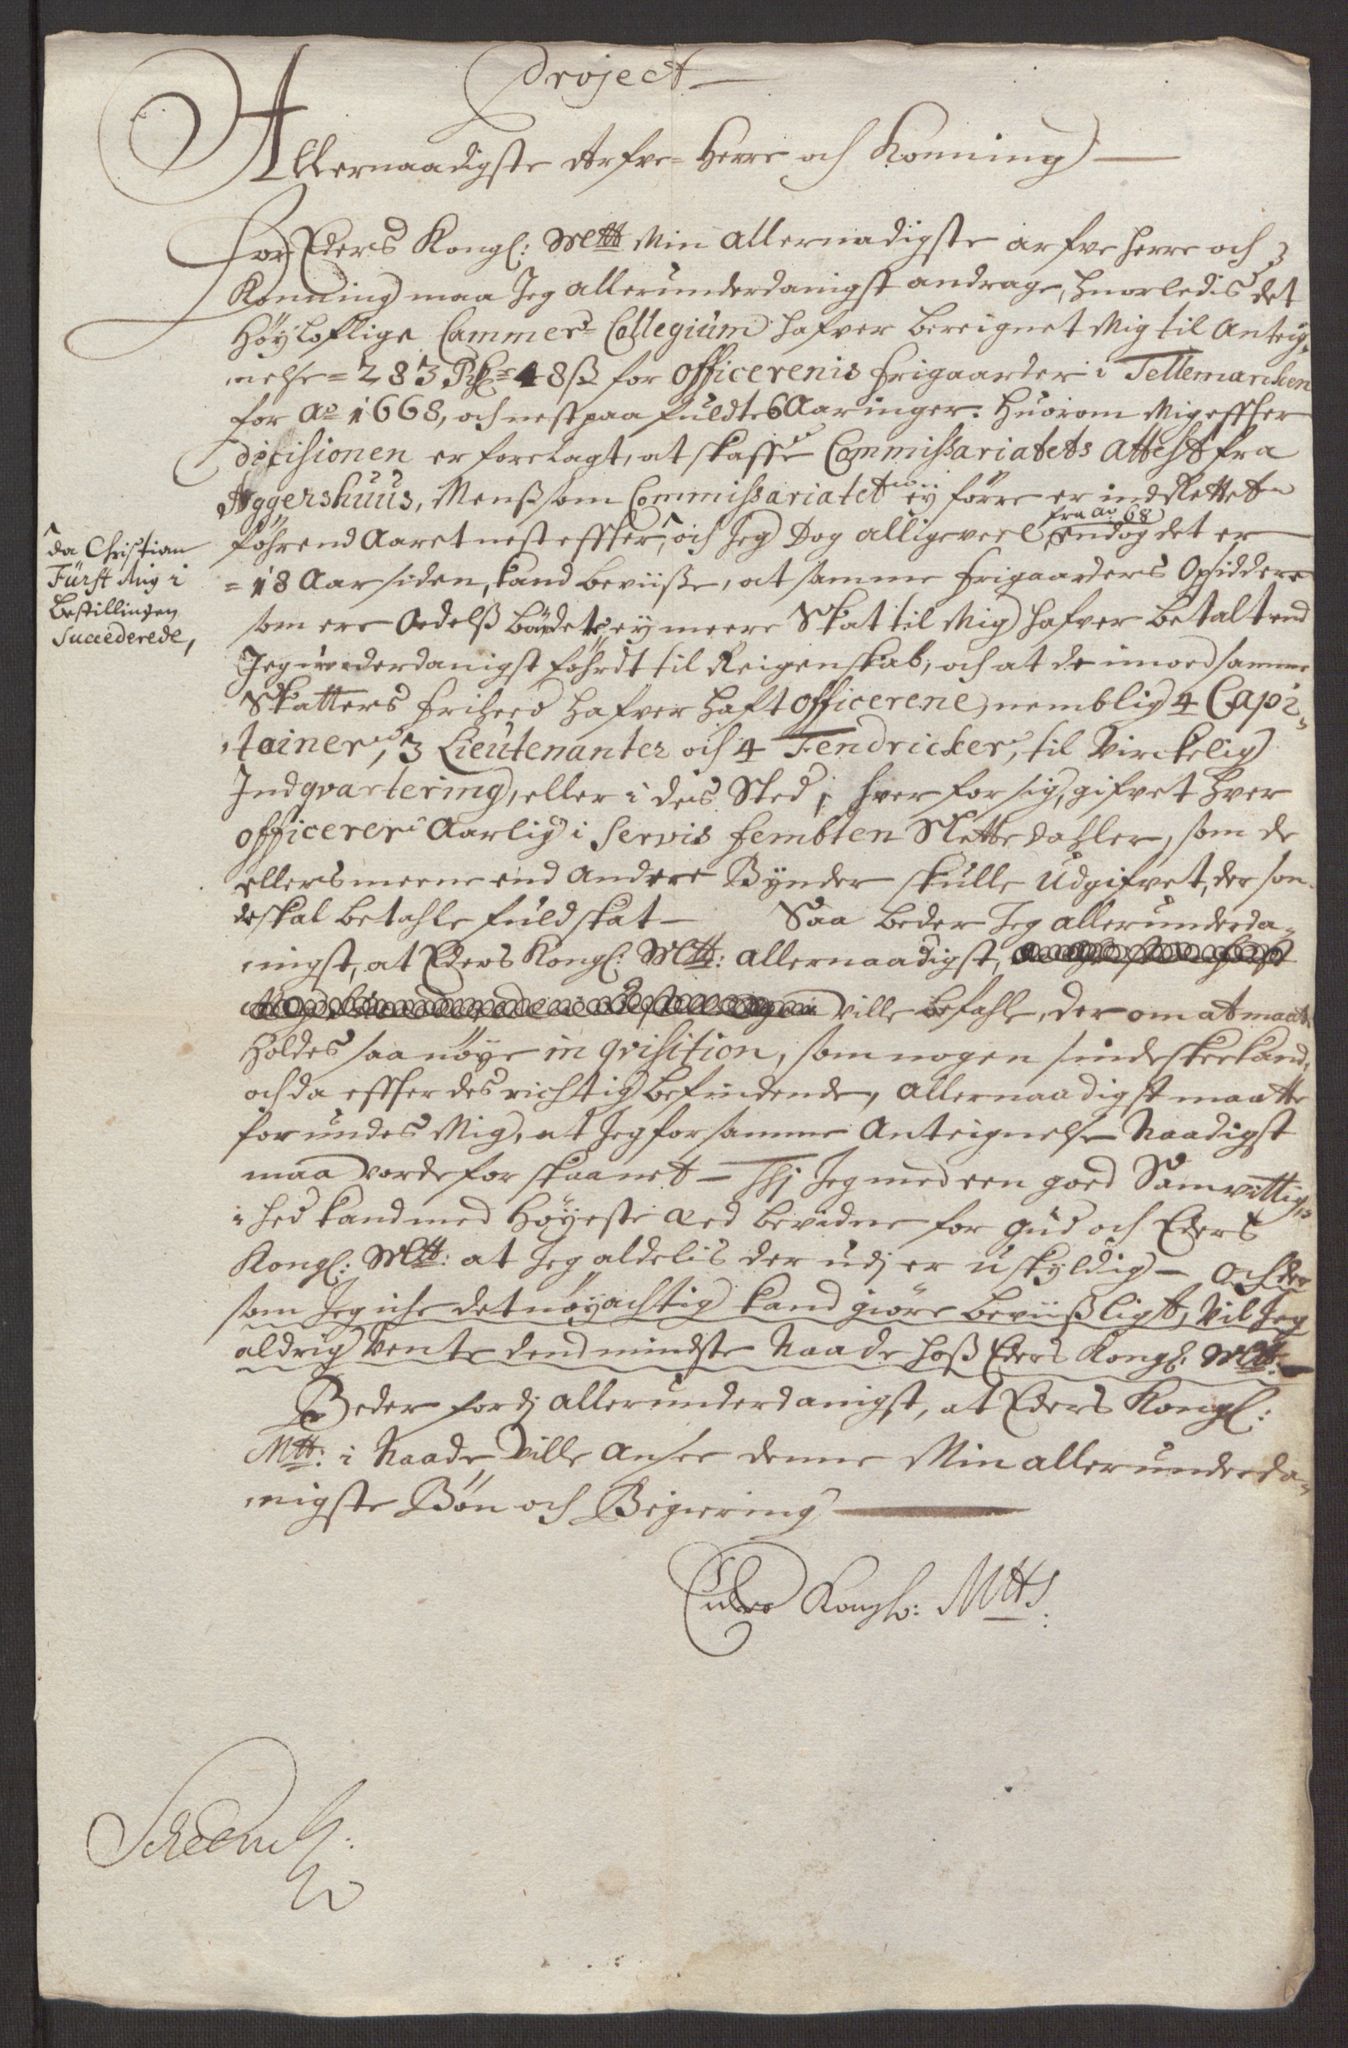 Project
Allernaadigste Arfve- Herre och Konning
For Eders Kongl: Mtt Min Allernadigste arfve herre och
Konning maa Jeg allerunderdanigst andrage, huorledis det
Høyloflige Cammer- Collegium hafver bereignet Mig til Anteig-
nelse = 283 Rd = 48 ß for Officerenis frigaarder i Tellemarcken
for Ao 1668, och nest paa fuldte 6 Aaringer. Huorom Mig effter
decisionen er forelagt, at skaffe Commissariatets Attest fra
Aggershuus, Menß som Commissariatet ey førre er indRettet
føhrend Aaret nest effter, och Jeg Dog alligeveel endog det er
fra ao 68
= 18 Aar siden, kand beviiße, at samme frigaarders Opsiddere
som ere Odelß bønder, ey meere Skat til Mig hafver betalt end
Jeg underdanigst føhrdt til Reigenskab, och at de imoed samme
Skatters friheed hafver haft officerene, nemblig 4 Capi-
tainer, 3 Lieutenanter och 4 Fendricker, til Virckelig
Indqvartering, eller i deis Sted, hver for sig, gifvet hver
officerer Aarlig i Servis fembten Slette daler, som de
ellers meere end Andere Bynder skulle Udgifvet, der som
de skal betahle fuld skat — Saa beder Jeg allerunderda-
nigst, at Eders Kongl: Mtt: allernaadigst,
ville befahle, der om at maate
holdes saa nøye inqvisition, som nogen sinde skee kand,
och da effter des richtig befindende, allernaadigst maatte
forundes Mig, at Jeg for samme Anteignelse Naadigst
maa vorde forskaanet — Thj Jeg med een goed Samvittig-
hed kand med høyeste æed bevidne for Gud och Eders
Kongl: Mtt: at Jeg aldelis der udj er uskyldig — Och der
som Jeg iche det nøyachtig kand giøre beviißligt, vil Jeg
aldrig vente dend mindste Naade hoß Eders Kongl: Mtt:
Beder fordj allerunderdanigst, at Eders Kongl:
Mtt: i Naade ville ansee denne Min allerunderda-
nigste Bøn och Begiering
Eders Kongl: Mtts
da Christian
Fürst Mig i
Bestillingen
Succederede,